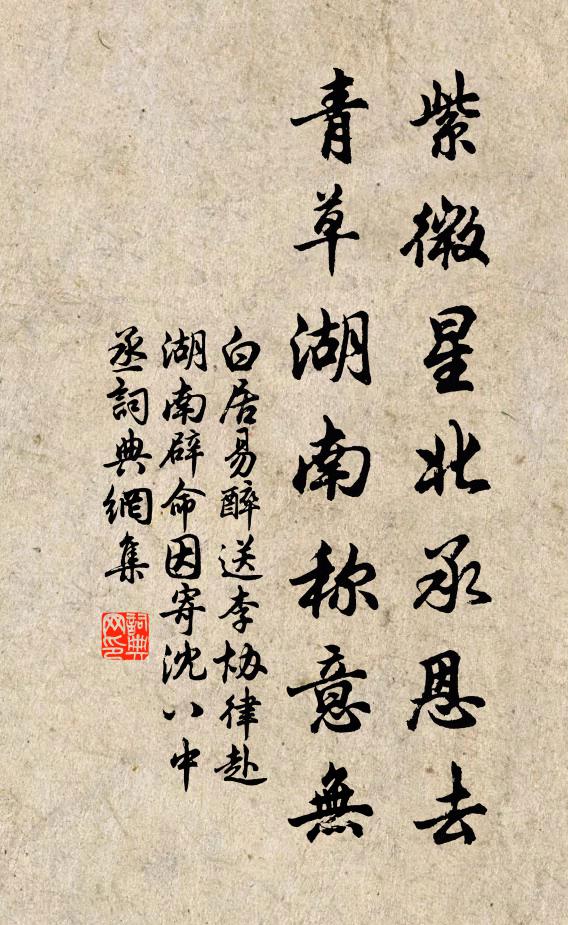 紫微星北承恩去
青草湖南称意無
白居易醉送李协律赴
湖南辟命因寄沈八中
丞詞典網集
詞典
网印